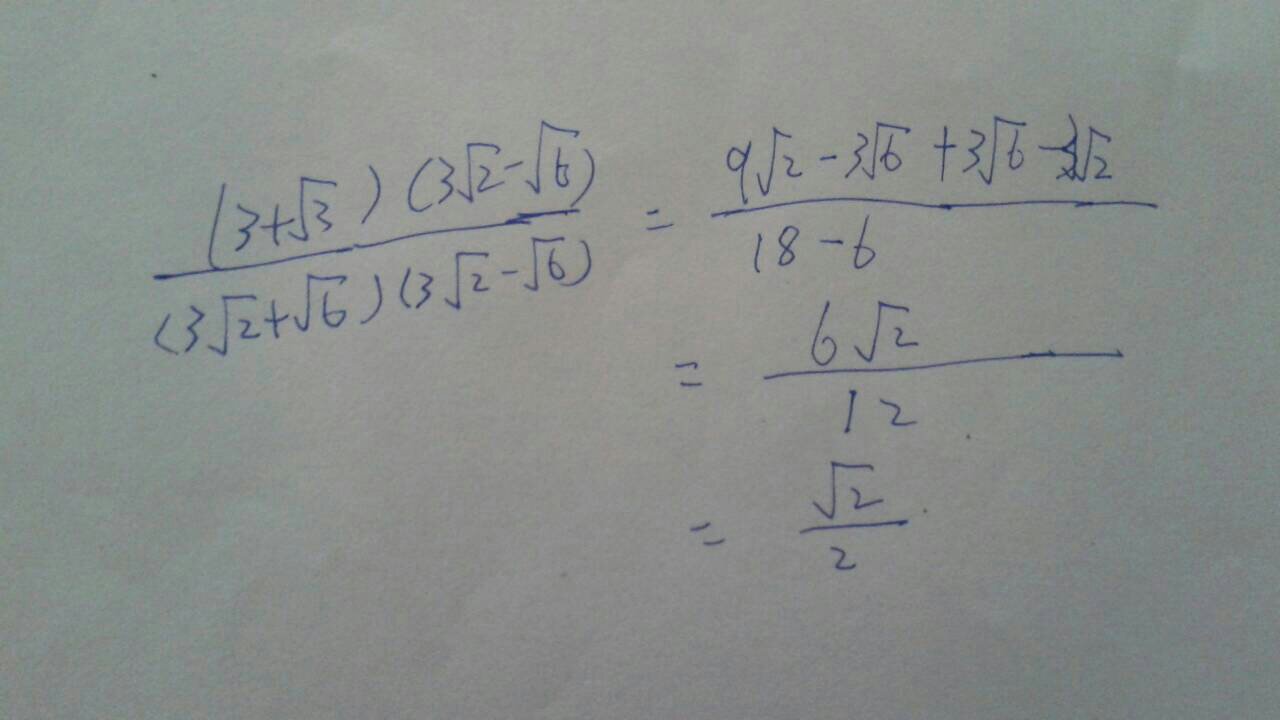 (3+√3)(3√2-√6) / (3√2+√6)(3√2-√6) = 9√2-3√6+3√6-3√2 / 18-6
= 6√2 / 12
= √2 / 2